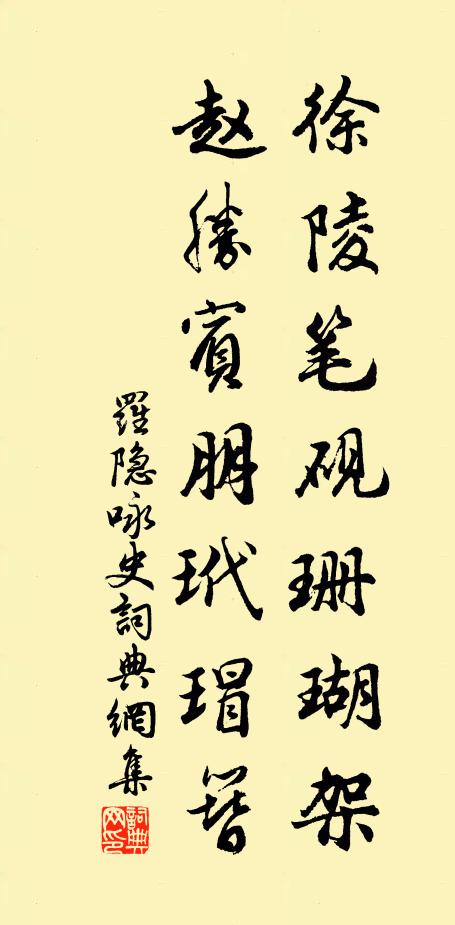 徐陵笔砚珊瑚架
赵胜宾朋玳瑁簪
羅隐咏史詞典網集
詞典
网印